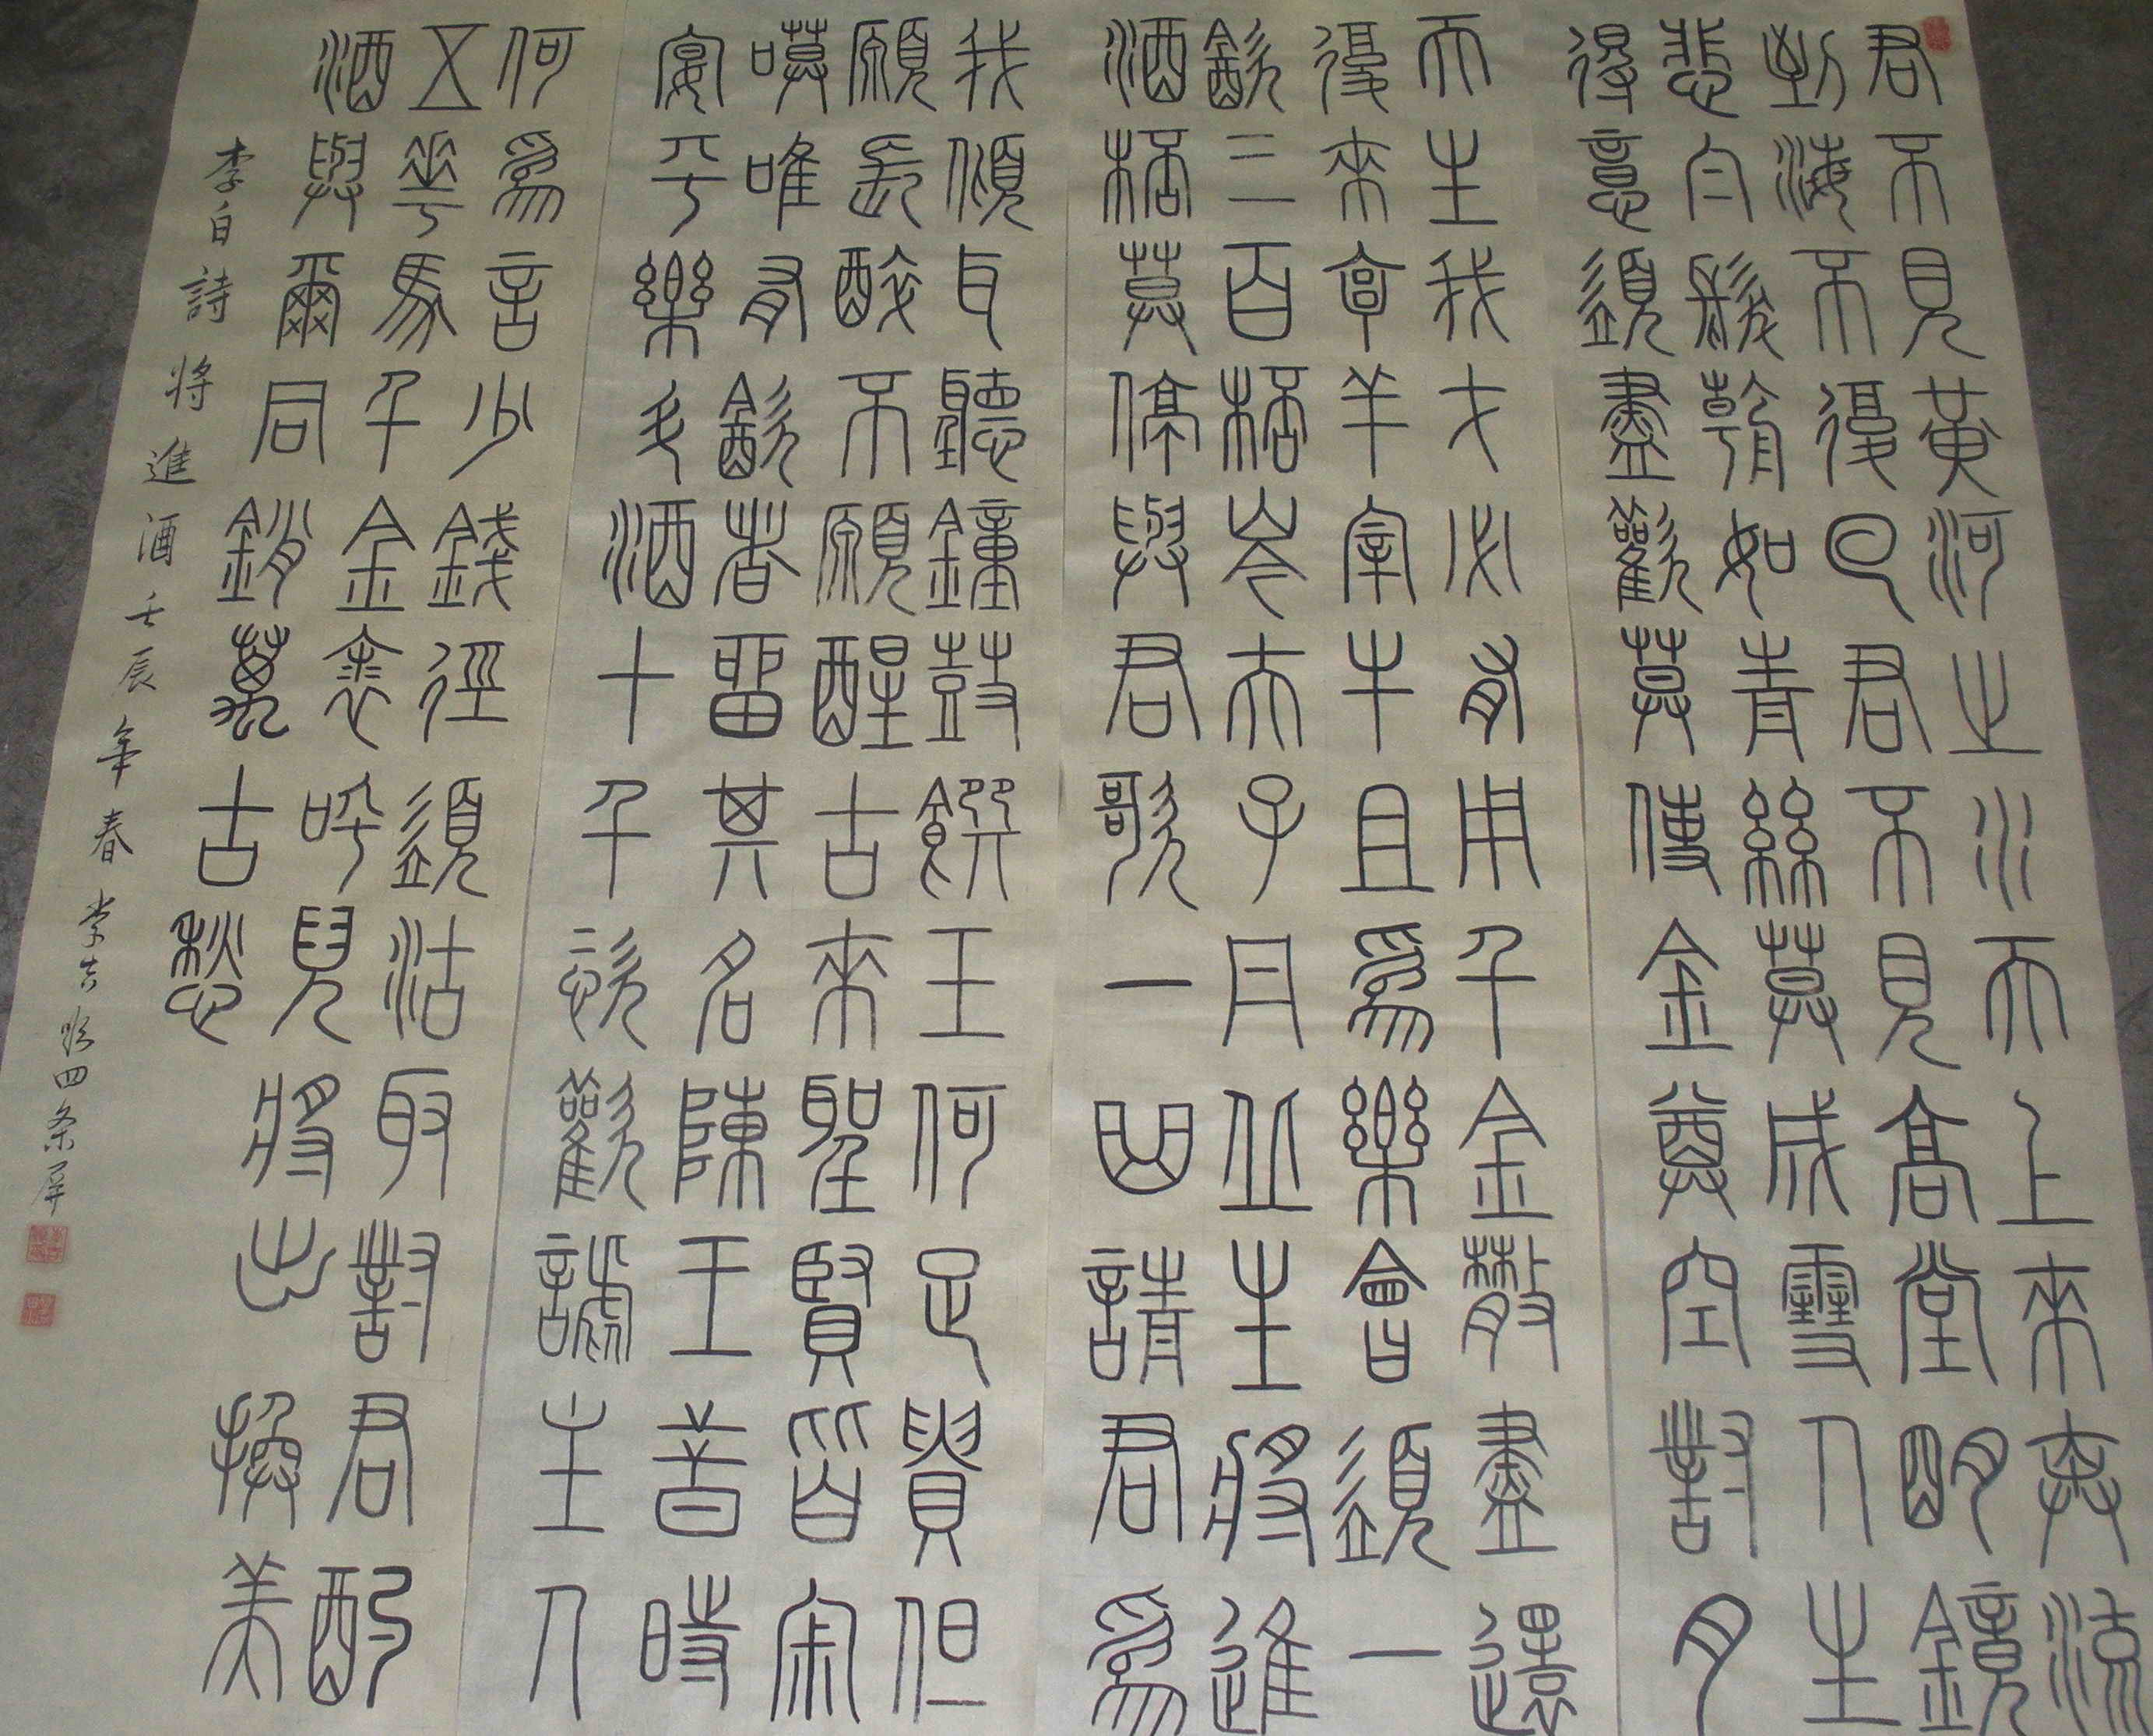 君不見黄河之水天上來奔流
到海不復回君不見高堂明鏡
悲白髮朝如青絲莫成雪人生
得意須盡歡莫使金尊空對月
天生我才必有用千金散盡還
復來烹羊宰牛且爲樂會須一
飲三百桮岑夫子丹丘生將進
酒桮莫停與君歌一曲請君爲
我傾耳聽鐘鼓饌玉何足貴但
願長醉不願醒古來聖賢皆寂
嗼唯有飲者留其名陳王昔時
宴平樂斗酒十千恣歡謔主人
何爲言少錢徑須沽取對君酌
五華馬千金裘呼兒將出換美
酒與爾同銷萬古愁
李白詩將進酒壬辰年春李吉四条屏